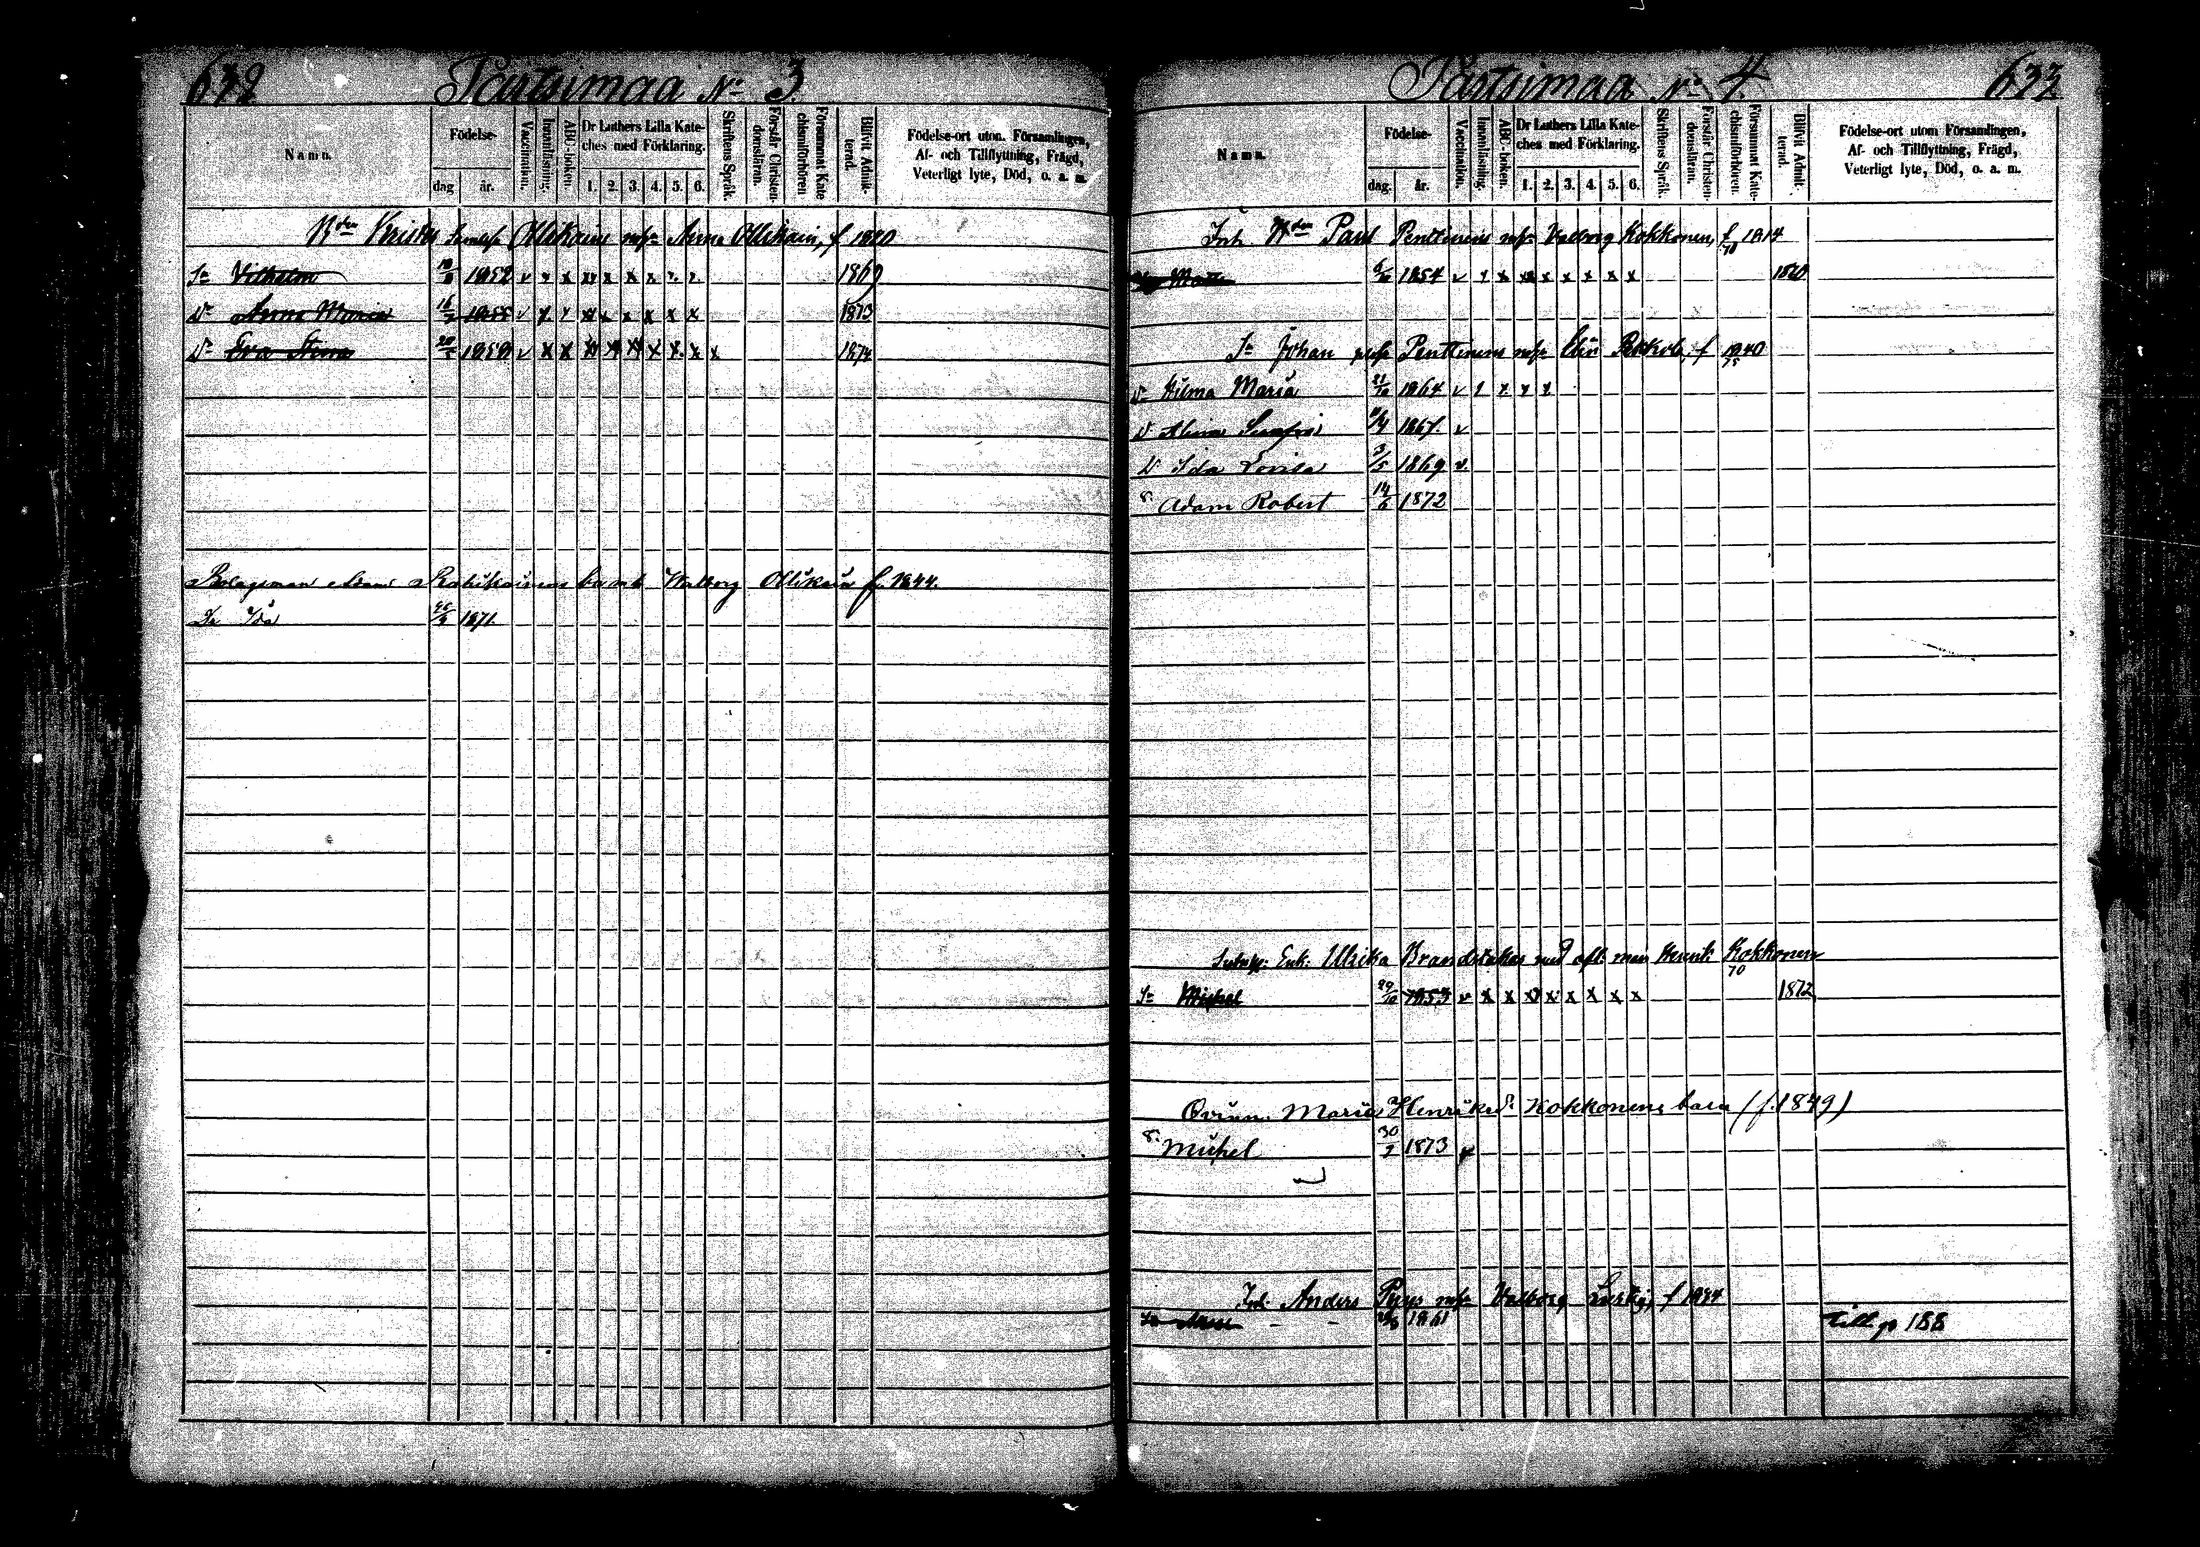 632 Partsimaa No 3.
Namn.
Födelse-
dag
år.
Vaccination.
Innanläsning.
ABC-boken.
Dr Luthers Lilla Kate-
ches med Förklaring.
1. 2. 3. 4. 5. 6.
Skriftens Språk.
Förstår Christen-
domsläran.
Försummat Kate
chismiförhören
Blifvit Admit-
terad.
Födelse-ort utom Församlingen,
Af- och Tillflyttning, Frägd,
Veterligt lyte, Död, o. a. m.
Ollikains Anna Ollikain, f. 1820
Sn Vilhelm 1852 v x x x x 1869
Dr Anna Maria 16 1855 v x x x x x 1873
Dr Eva Stina 1858 v x x x x x x x x 1874
Bolagsman Adam Rahikainens barn Walborg Ollikain f. 1844.
Dr Ida 1871.
Partsimaa No 4. 633
Namn.
Födelse-
dag.
år.
Vaccination.
Innanläsning.
ABC-boken.
Dr Luthers Lilla Kate-
ches med Förklaring.
1. 2. 3. 4. 5. 6.
Skriftens Språk.
Förstår Christen-
domsläran.
Försummat Kate-
chismiförhören.
Blifvit Admit-
terad.
Födelse-ort utom Församlingen,
Af- och Tillflyttning, Frägd,
Veterligt lyte, Död, o. a. m.
Paul Penttinens Valborg Kokkonen, f. 1814
70
1854 v x x x x x x x
Sn Johan Penttinens f 1840
75
Dr Hilma Maria 1864 v
D Alina 1867 v
D Ida Lovisa 3/5 1869 v.
S. Adam Robert 14/6 1872
Enk: Ulrika Brandstakas med afl: man Henrik Kokkonen
70
Sn Michel 29/10 1853 v x x x x x x x x 1872
Qvinn. Maria Henriksdr Kokkonens barn (f. 1849)
S. Michel 30 1873
Anders Valborg f 1834
1861 till p 188